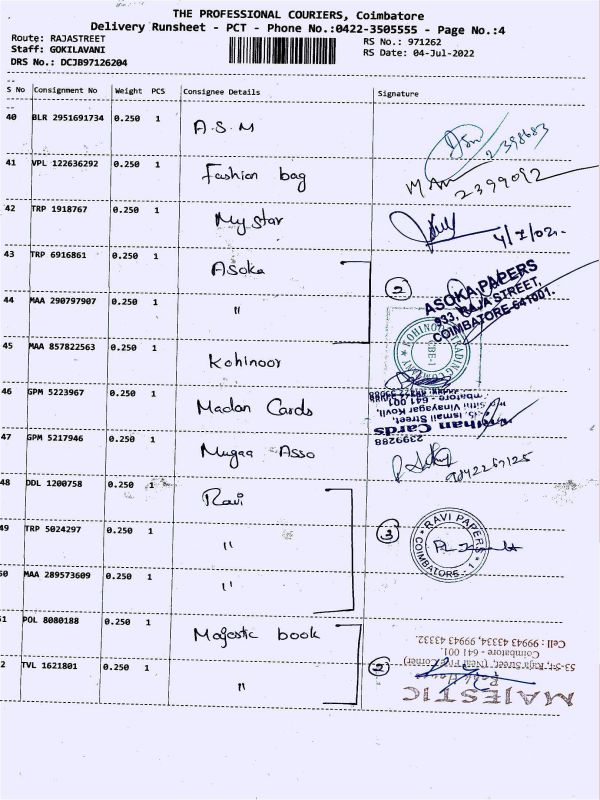 THE PROFESSIONAL COURIERS, Coimbatore
Delivery Runsheet - PCT - Phone No.:0422-3505555 - Page No.:4
Route: RAJASTREET
Staff: GOKILAVANI
DRS No.: DCJB97126204
RS No.: 971262
RS Date: 04-Jul-2022
S No Consignment No Weight PCS Consignee Details Signature
40 BLR 2951691734 0.250 1 A.S.M
2398683
41 VPL 122636292 0.250 1 Fashion bag
2399092
42 TRP 1918767 0.250 1 My star
43 TRP 6916861 0.250 1 Asoka
2
ASOKA PAPERS
933, RAJA STREET,
COIMBATORE-641001.
44 MAA 290797907 0.250 1 "
45 MAA 857822563 0.250 1 Kohinoor
46 GPM 5223967 0.250 1 Madan Cards
Ismail Street,
Sithi Vinayagar Kovil,
641 001
2399288
47 GPM 5217946 0.250 1 Mugaa Asso
9842267125
48 DDL 1200758 0.250 1 Ravi
49 TRP 5024297 0.250 1 "
3
RAVI PAPERS
COIMBATORE - 1
50 MAA 289573609 0.250 1 "
51 POL 8080188 0.250 1 Majestic book
Cell : 99943 44334, 99943 43332.
Coimbatore - 641 001.
2 TVL 1621801 0.250 1 "
53-54, Raja Street, (Near Five Corner)
MAJESTIC